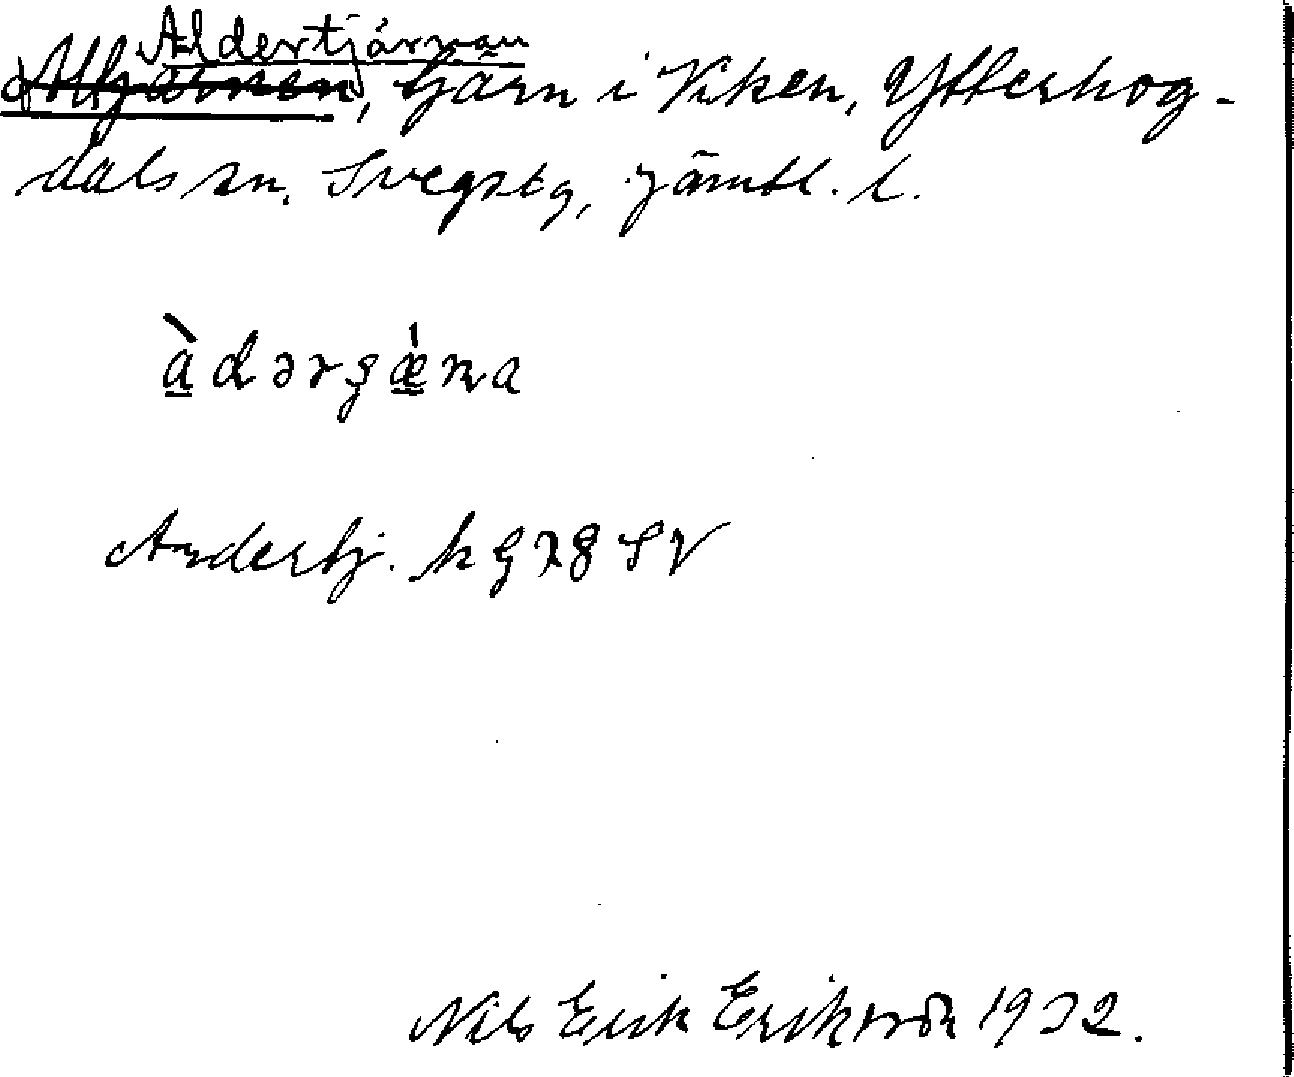 Aldertjärnan
Altjärnen, tjärn i Viken, Ytterhog-
dals sn. Svegstg, Jämtl. l.
àdərʂǽɳa
Andertj. k G 78 SV
Nils Erik Erikson 1932.